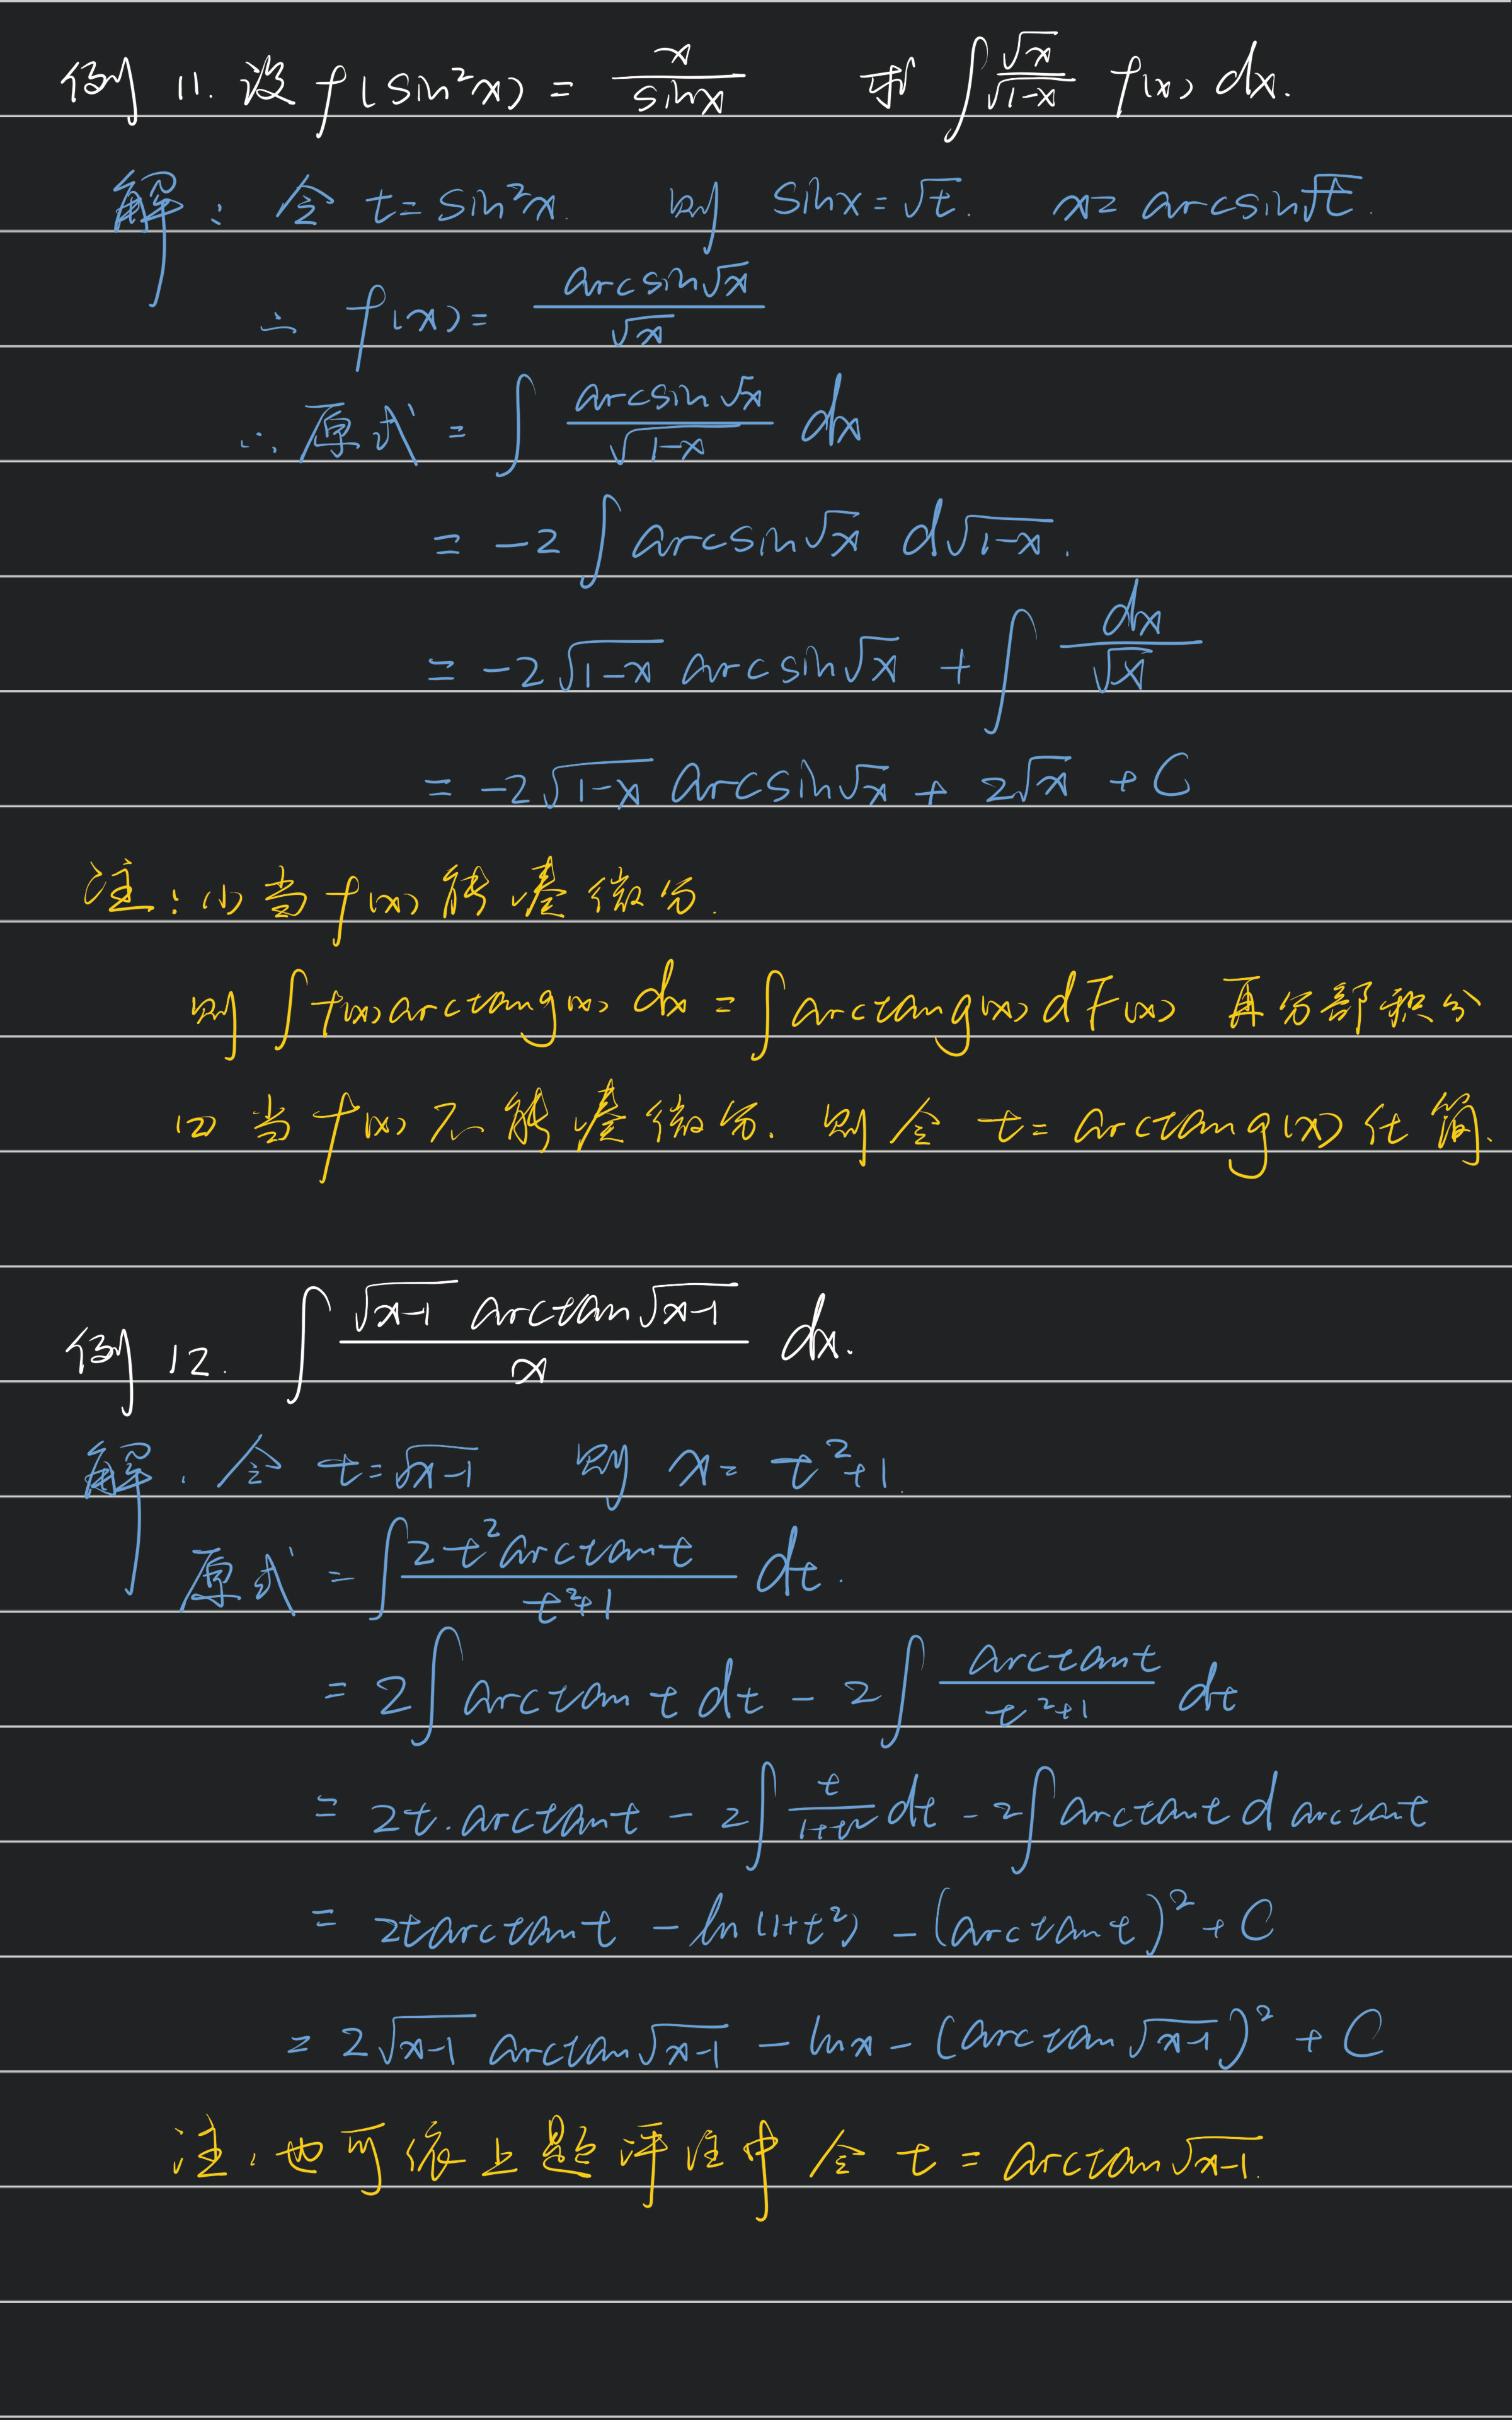 例 11. 设 f(sin²x) = x/sinx 求 ∫ √x/√(1-x) f(x) dx.
解: 令 t = sin²x. 则 sinx = √t. x = arcsin√t.
∴ f(x) = arcsin√x/√x
∴ 原式 = ∫ arcsin√x/√(1-x) dx
= -2 ∫ arcsin√x d√(1-x).
= -2√(1-x) arcsin√x + ∫ dx/√x
= -2√(1-x) arcsin√x + 2√x + C
注: (1) 当 f(x) 能凑微分.
则 ∫ f(x) arctan g(x) dx = ∫ arctan g(x) d F(x) 再分部积分
(2) 当 f(x) 不能凑微分. 则令 t = arctan g(x) 化简.
例 12. ∫ √(x-1) arctan√(x-1)/x dx.
解. 令 t = √(x-1) 则 x = t²+1.
原式 = ∫ 2t² arctan t/(t²+1) dt.
= 2 ∫ arctan t dt - 2 ∫ arctan t/(t²+1) dt
= 2t. arctan t - 2 ∫ t/(1+t²) dt - 2 ∫ arctan t d arctan t
= 2t arctan t - ln(1+t²) - (arctan t)² + C
= 2√(x-1) arctan√(x-1) - lnx - (arctan√(x-1))² + C
注. 也可依上题评注中 令 t = arctan√(x-1).